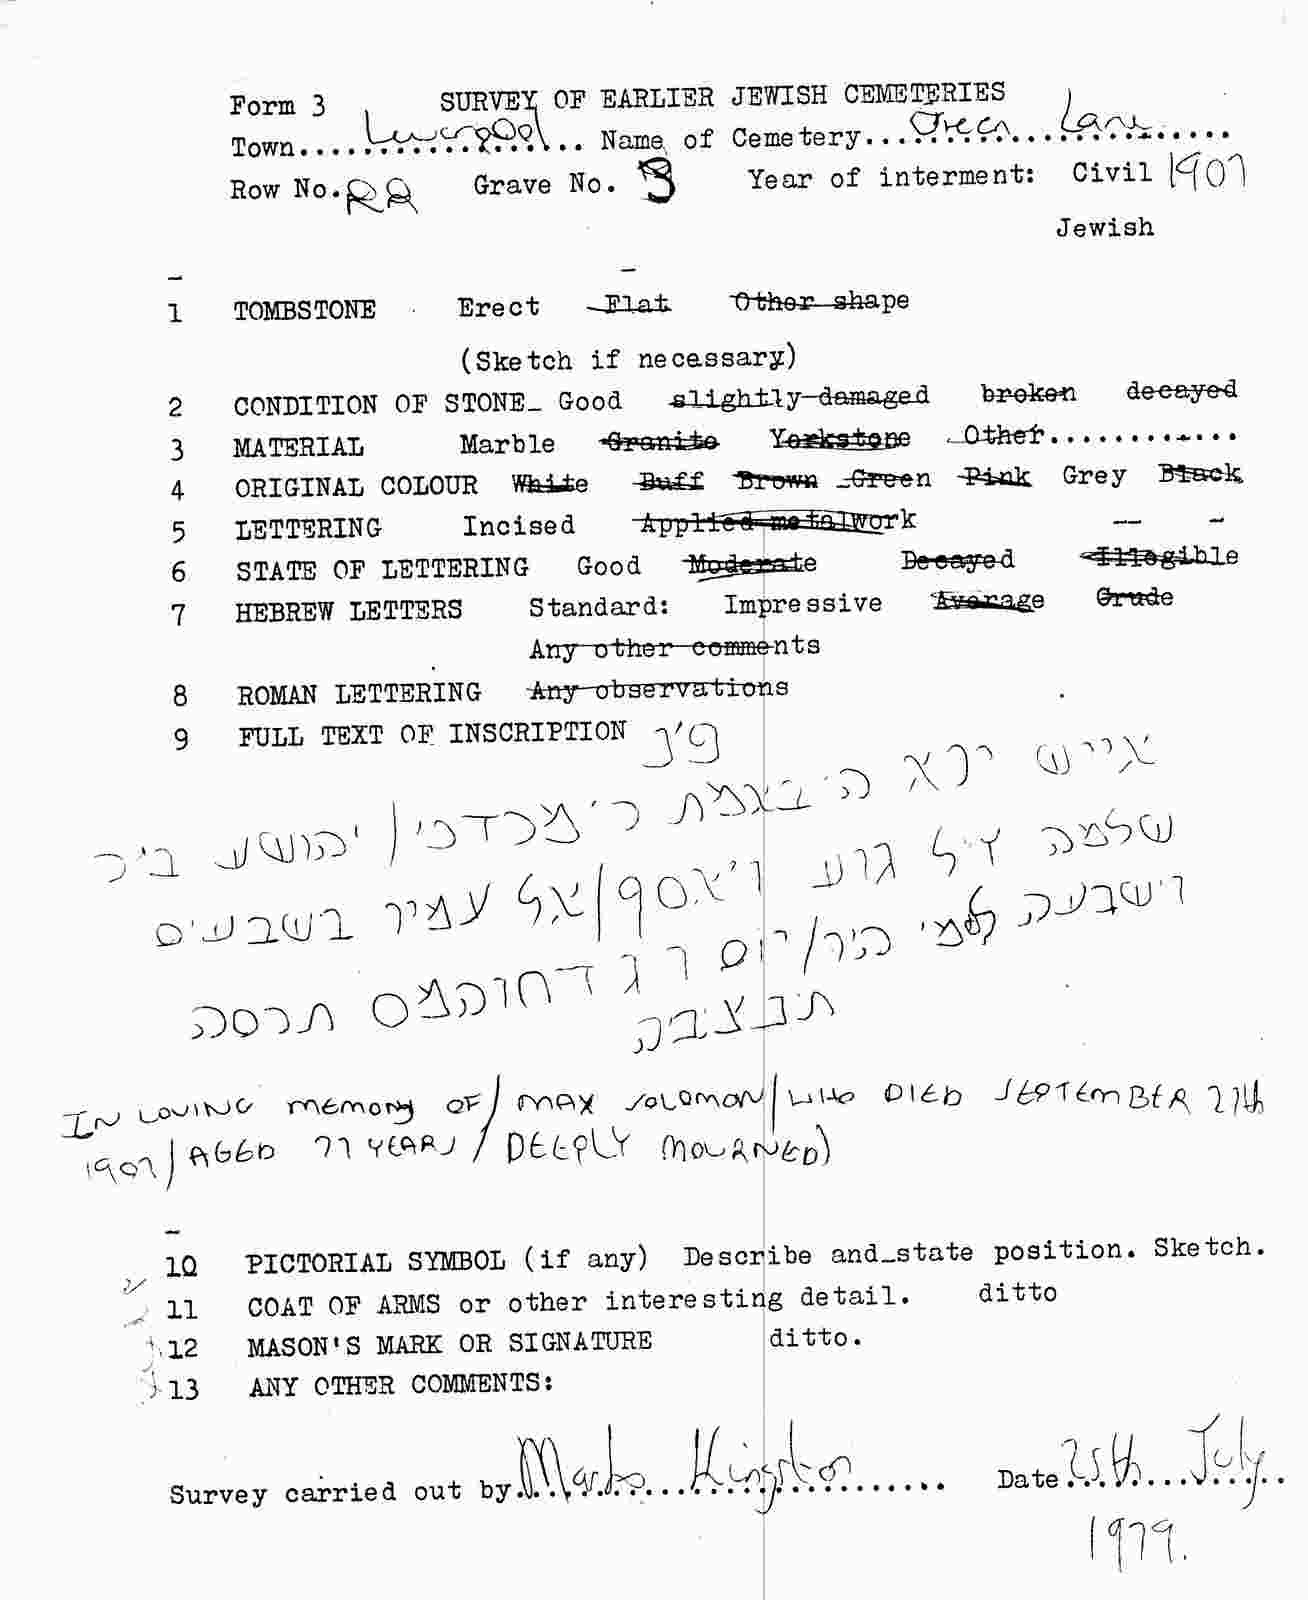 Form 3 SURVEY OF EARLIER JEWISH CEMETERIES
Town.......Liverpool....... Name of Cemetery...Green Lane...
Row No. RR Grave No. 3 Year of interment: Civil 1907
Jewish
1 TOMBSTONE Erect Flat Other shape
(Sketch if necessary)
2 CONDITION OF STONE Good slightly damaged broken decayed
3 MATERIAL Marble Granite Yorkstone Other............
4 ORIGINAL COLOUR White Buff Brown Green Pink Grey Black
5 LETTERING Incised Applied metalwork
6 STATE OF LETTERING Good Moderate Decayed Illegible
7 HEBREW LETTERS Standard: Impressive Average Crude
Any other comments
8 ROMAN LETTERING Any observations
9 FULL TEXT OF INSCRIPTION פ'נ
אייש ירא ה' באמת ר' מרדכי/יהושע ב'ר
שלמה ז'ל גוע ויאסף/אל עמיו בשבעים
ושבעה היו/יום ו ג דחוהמס תרסה
תנצבה
IN LOVING MEMORY OF/ MAX SOLOMON/WHO DIED SEPTEMBER 27th
1907/AGED 77 YEARS/DEEPLY MOURNED)
10 PICTORIAL SYMBOL (if any) Describe and state position. Sketch.
11 COAT OF ARMS or other interesting detail. ditto
12 MASON'S MARK OR SIGNATURE ditto.
13 ANY OTHER COMMENTS:
Survey carried out by Marks Kingston Date 25th July
1979.